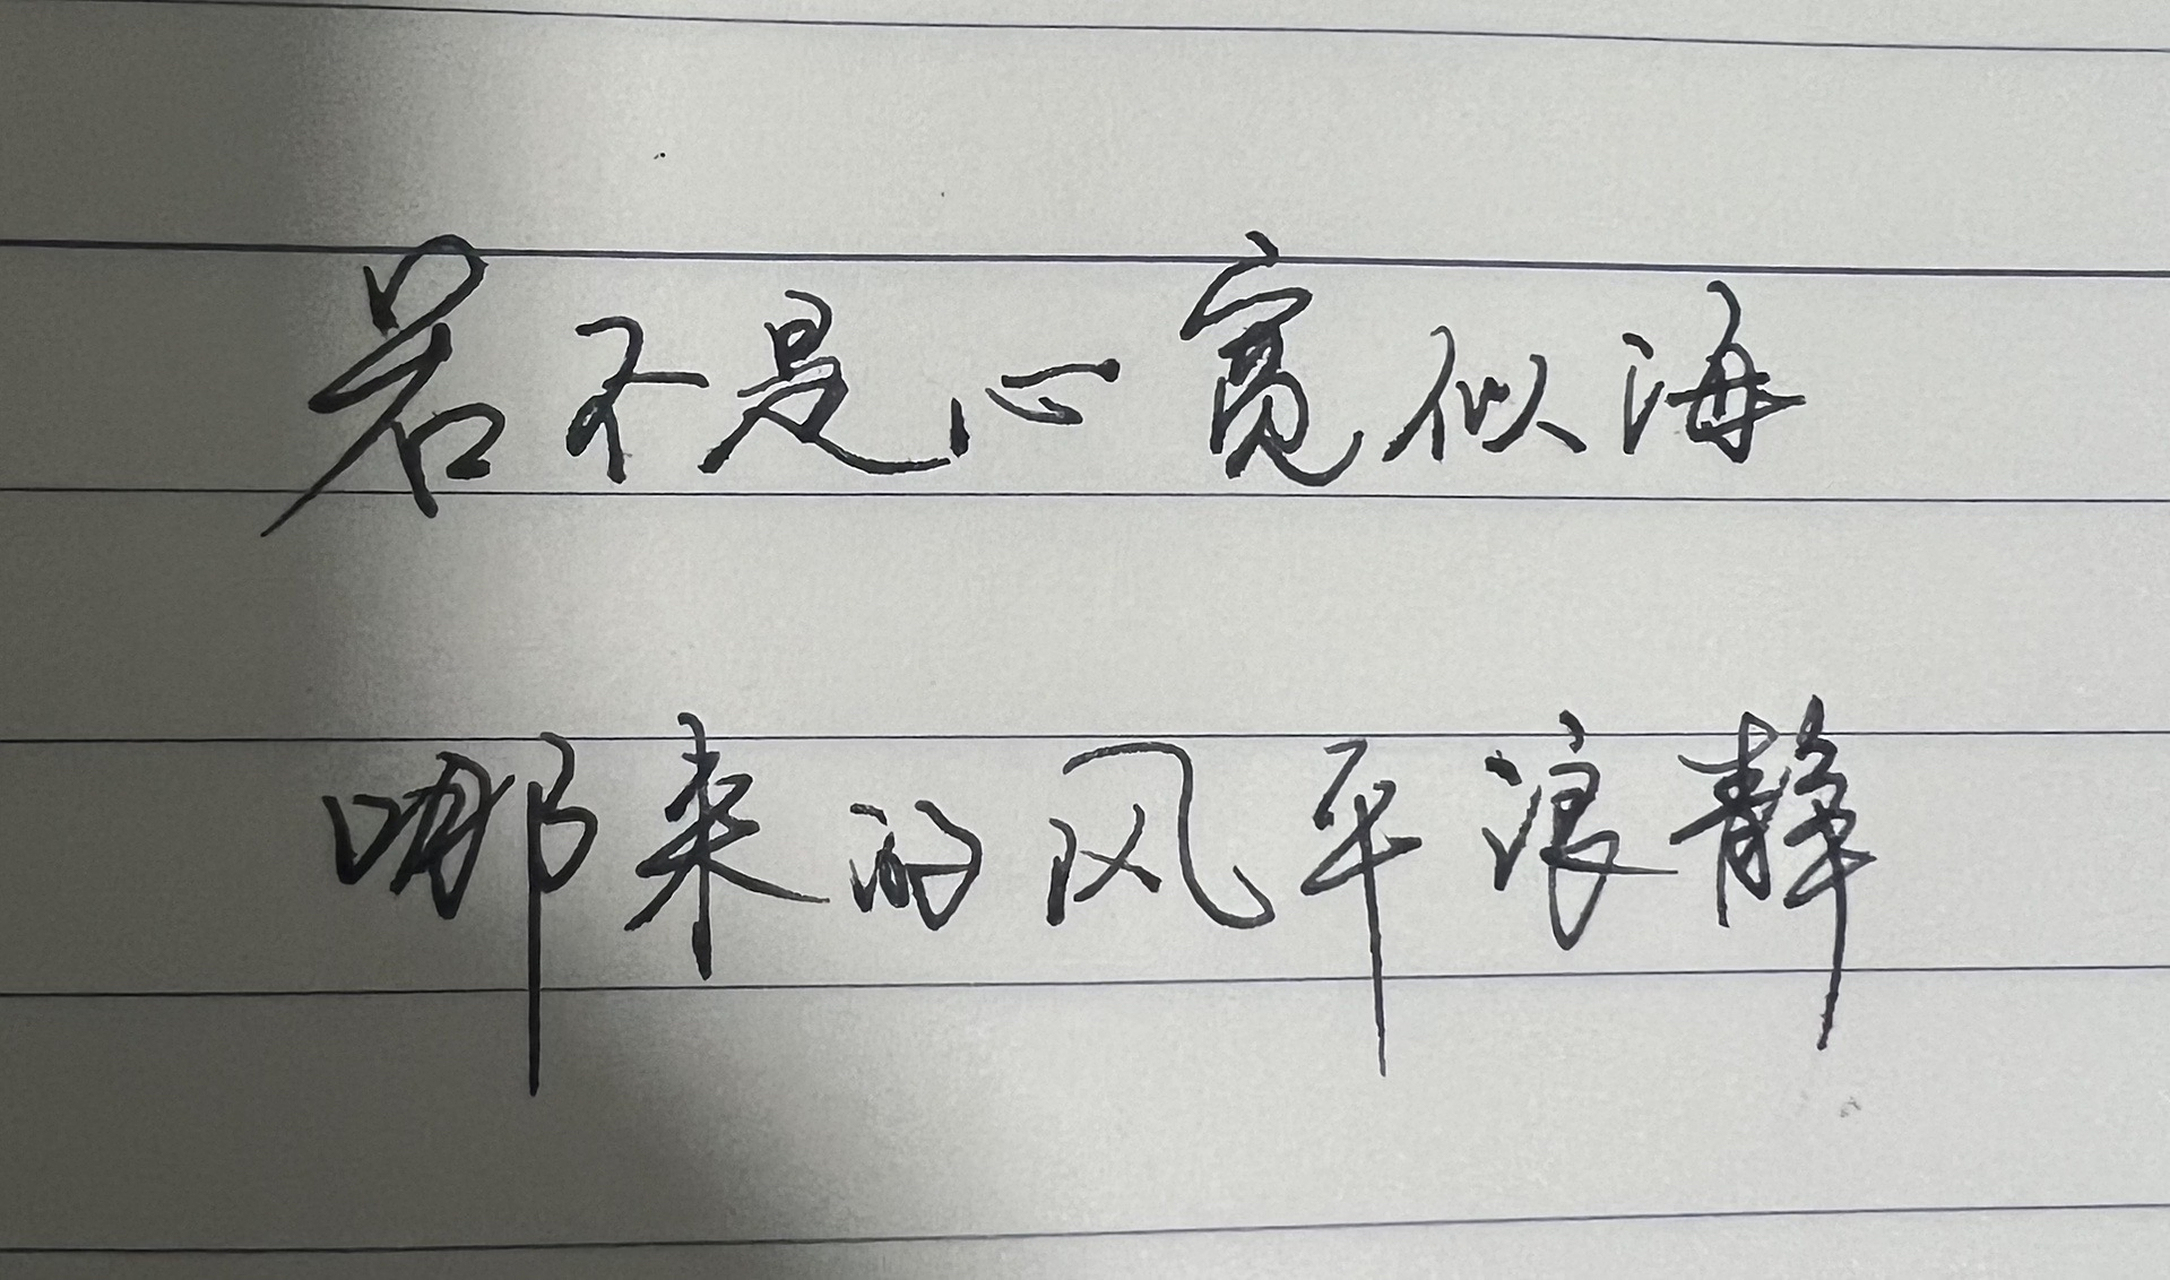 若不是心宽似海
哪来的风平浪静